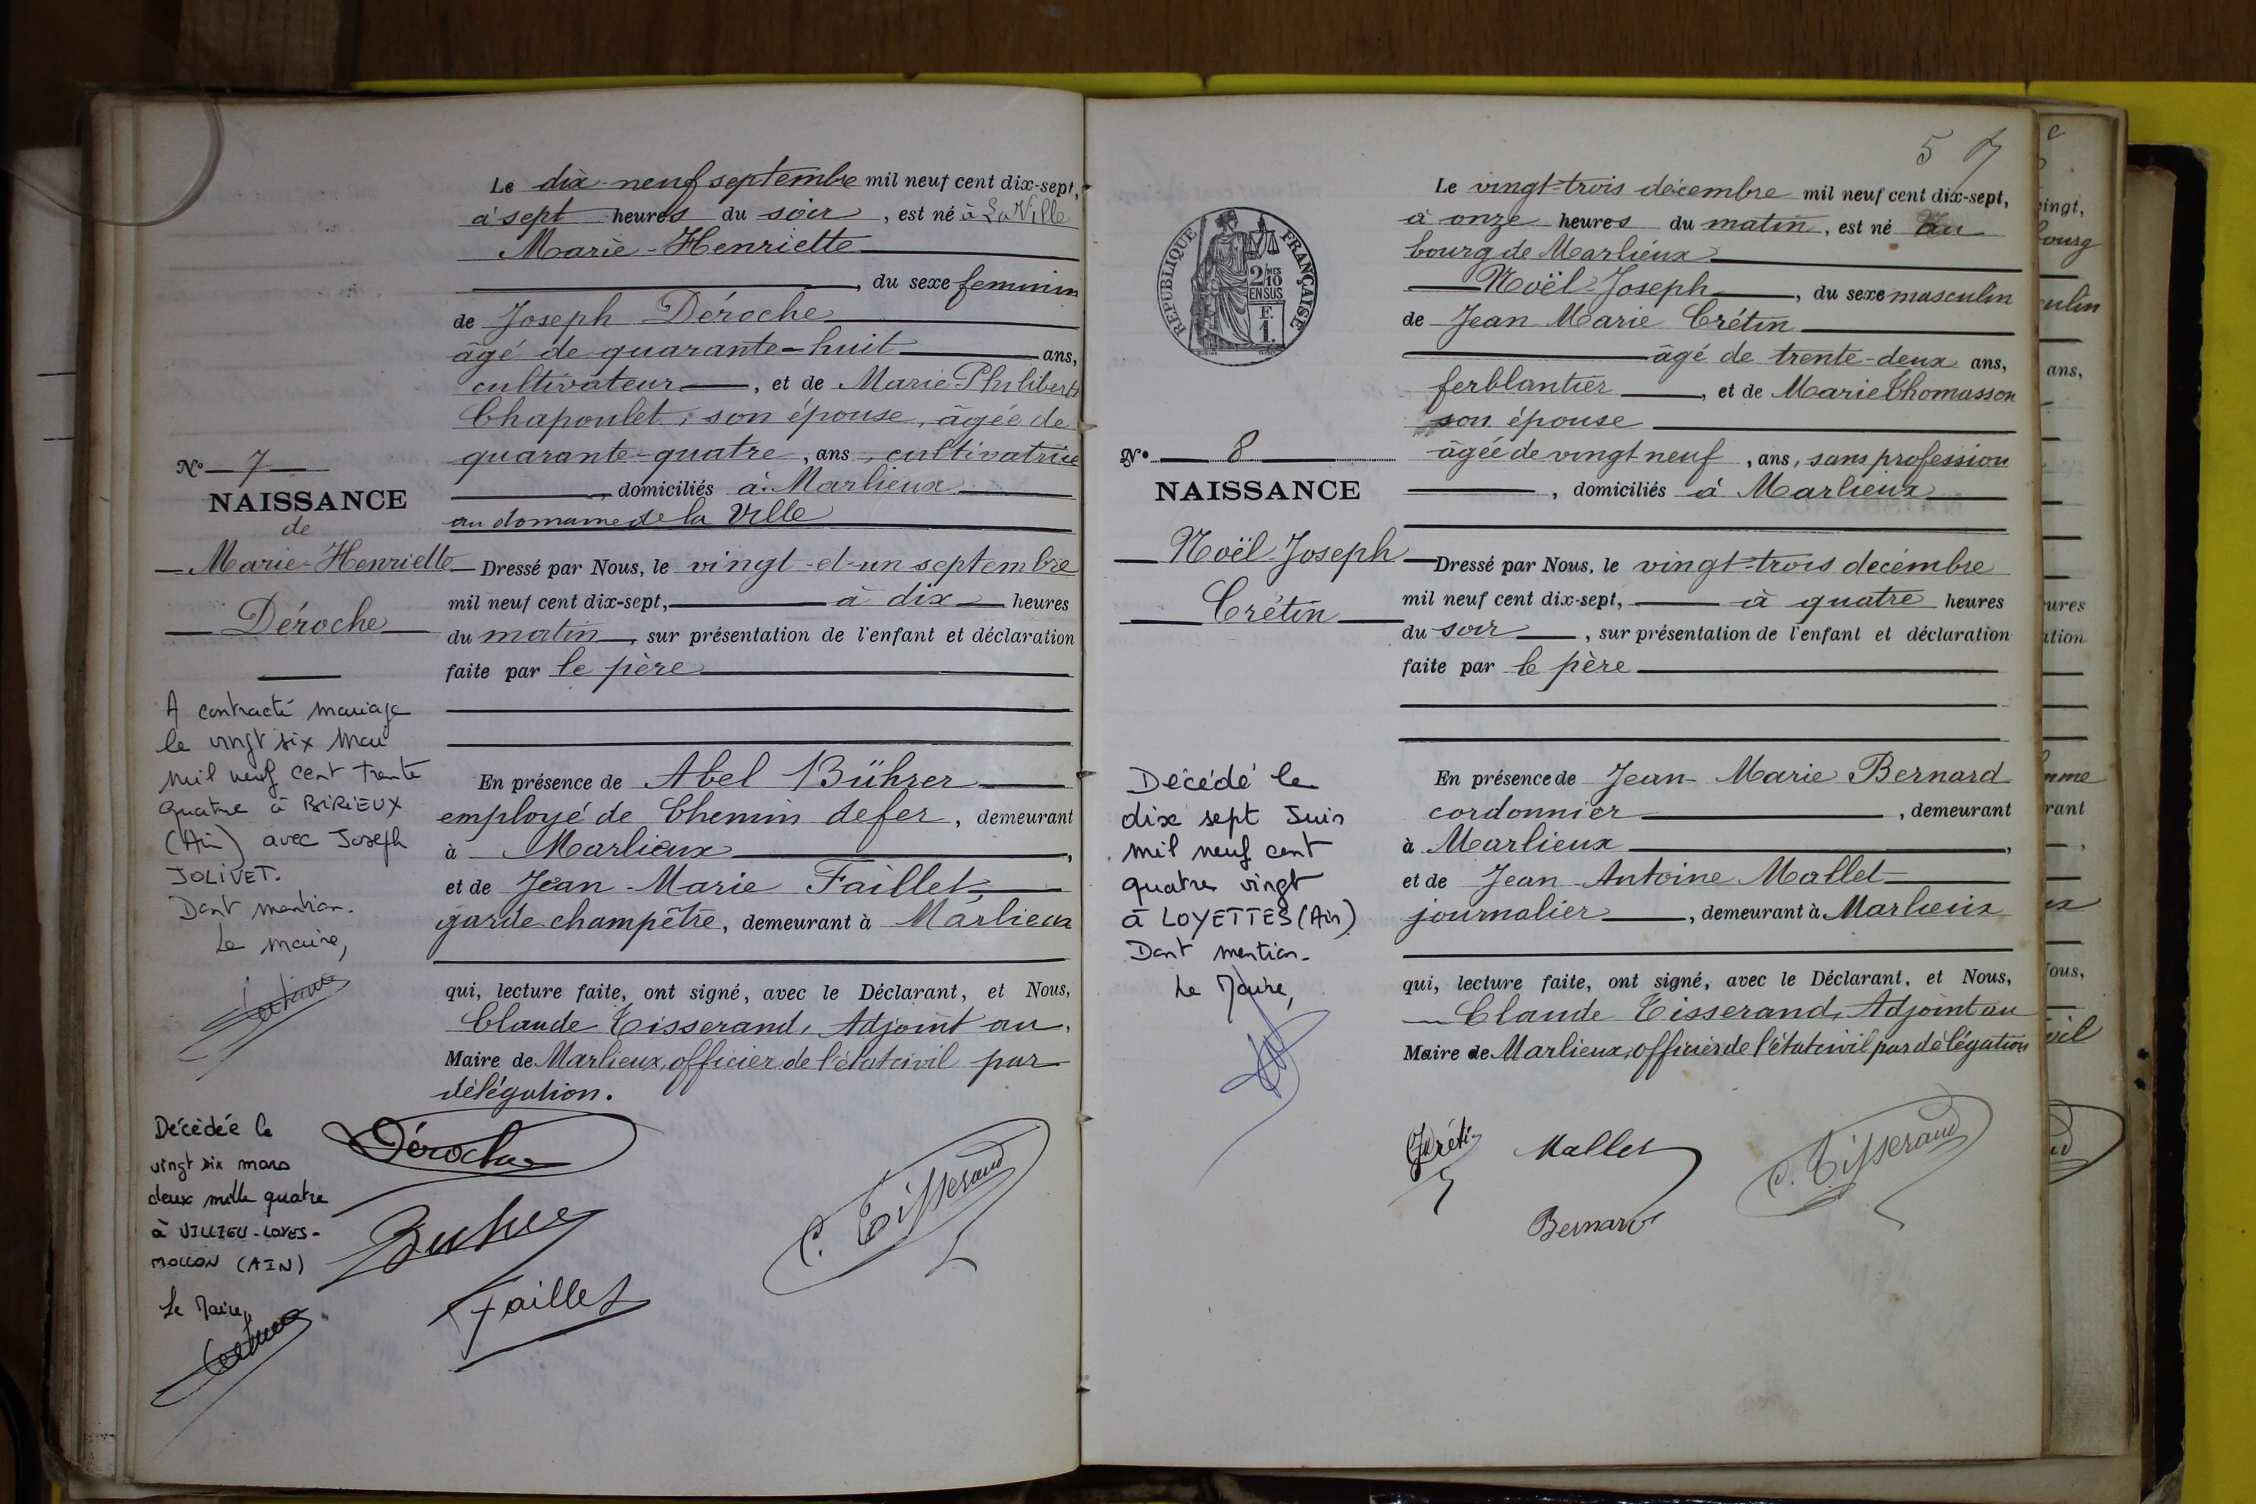 Le dix-neuf septembre mil neuf cent dix-sept,
à sept heures du soir, est né à La Ville
Marie-Henriette
, du sexe feminin
de Joseph Déroche
âgé de quarante-huit ans,
cultivateur, et de Marie-Philiberte
Chapoulet, son épouse, âgée de
quarante-quatre, ans, cultivatrice
, domiciliés à Marlieux
au domaine de la Ville
N° 7
NAISSANCE
de
Marie-Henriette
Déroche
Dressé par Nous, le vingt-et-un septembre
mil neuf cent dix-sept, à dix heures
du matin, sur présentation de l'enfant et déclaration
faite par le père
A contracté mariage
le vingt six mai
mil neuf cent trente
quatre à BIRIEUX
(Ain) avec Joseph
JOLIVET.
Dont mention.
Le maire,
En présence de Abel Bührer
employé de Chemin de fer, demeurant
à Marlieux,
et de Jean-Marie Faillet,
garde-champêtre, demeurant à Marlieux
qui, lecture faite, ont signé, avec le Déclarant, et Nous,
Claude Tisserand, Adjoint au
Maire de Marlieux, officier de l'état civil par
délégation.
Décédée le
vingt six mars
deux mille quatre
à VILLIEU-LOYES-
MOLLON (AIN)
Le Maire,
Déroche
Buhrer
Faillet
C. Tisserand
5
RÉPUBLIQUE FRANÇAISE
2/10
EN SUS
F.
1.
Le vingt-trois décembre mil neuf cent dix-sept,
à onze heures du matin, est né au
bourg de Marlieux
Noël-Joseph, du sexe masculin
de Jean Marie Crétin
âgé de trente-deux ans,
ferblantier, et de Marie Thomasson
son épouse
âgée de vingt neuf, ans, sans profession
, domiciliés à Marlieux
N° 8
NAISSANCE
Noël-Joseph
Crétin
Dressé par Nous, le vingt-trois décembre
mil neuf cent dix-sept, à quatre heures
du soir, sur présentation de l'enfant et déclaration
faite par le père
Décédé le
dix sept Juin
mil neuf cent
quatre vingt
à LOYETTES (Ain)
Dont mention.
Le Maire,
En présence de Jean-Marie Bernard
cordonnier, demeurant
à Marlieux,
et de Jean-Antoine Mallet
journalier, demeurant à Marlieux
qui, lecture faite, ont signé, avec le Déclarant, et Nous,
Claude Tisserand, Adjoint au
Maire de Marlieux, officier de l'état civil par délégation
Crétin
Mallet
Bernard
C. Tisserand
vingt,
bourg
ans,